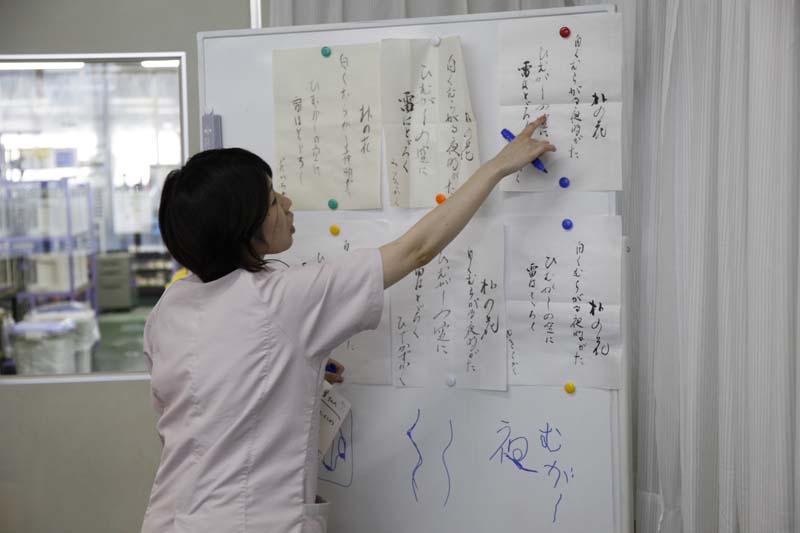 朴の花
白くむらがる夜明がた
ひむがしの空に
雷はとどろく
朴の花
白くむらがる夜明がた
ひむがしの空に
雷はとどろく
朴の花
白くむらがる夜明がた
ひむがしの空に
雷はとどろく
朴の花
白くむらがる夜明がた
ひむがしの空に
雷はとどろく
朴の花
白くむらがる夜明がた
ひむがしの空に
雷はとどろく
むがし
夜